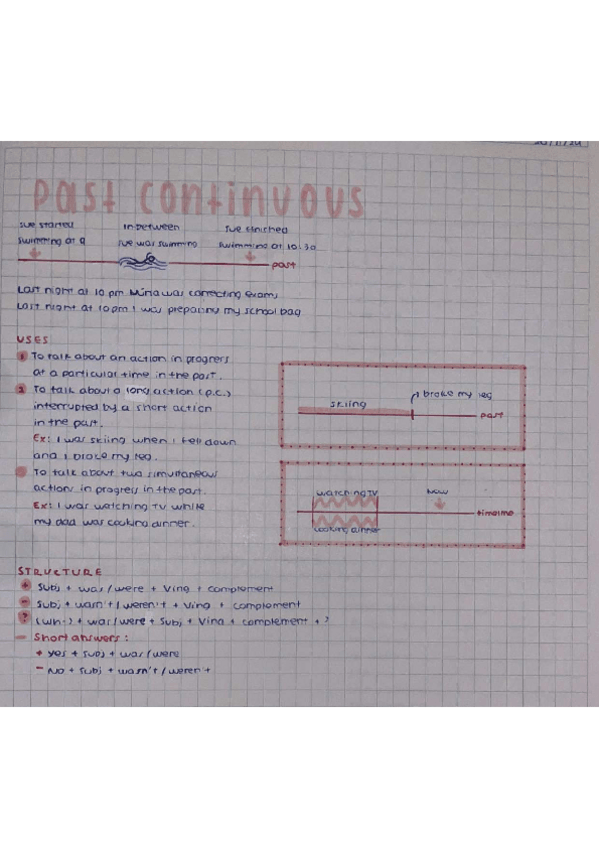 past continuous
Sue started in between Sue finished
swimming at 9 Sue was swimming swimming at 10:30
past
Last night at 10 pm was correcting exams
Last night at 10 pm I was preparing my school bag
USES
1 To talk about an action in progress
at a particular time in the past.
2 To talk about a long action (p.c.)
interrupted by a short action
in the past.
Ex: I was skiing when I fell down
and I broke my leg.
To talk about two simultaneous
actions in progress in the past.
Ex: I was watching TV while
my dad was cooking dinner.
I broke my leg
skiing
past
watching TV now
timeline
cooking dinner
STRUCTURE
+ Subj + was/were + Ving + complement
- Subj + wasn't/weren't + Ving + complement
? (wh-) + was/were + Subj + Ving + complement + ?
- Short answers:
+ Yes + subj + was/were
- No + subj + wasn't/weren't